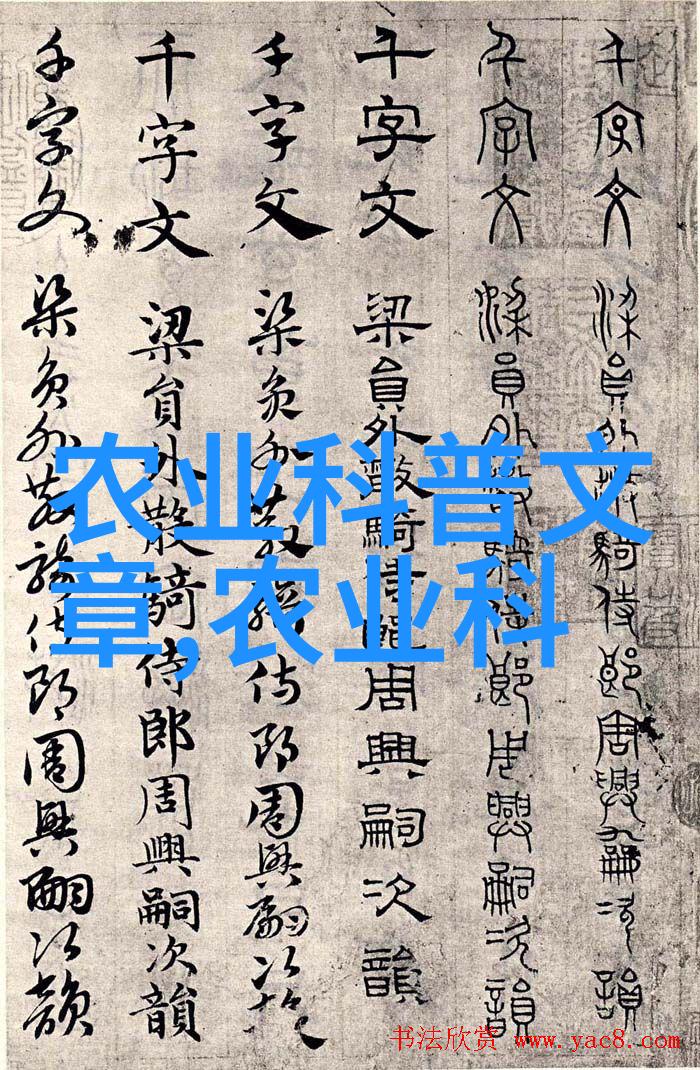 千字文 梁員外散騎侍郎周興嗣次韻
千字文 梁員外散騎侍郎周興嗣次韻
千字文 梁員外散騎侍郎周興嗣次韻
千字文 梁員外散騎侍郎周興嗣次韻
千字文 梁員外散騎侍郎周興嗣次韻
千字文 梁員外散騎侍郎周興嗣次韻
农业科普文
章,农业科
书法欣赏 www.yac8.com